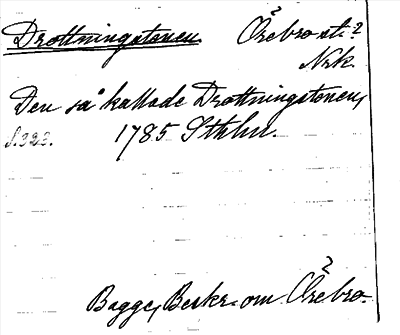 Drottningstenen Örebro st.?
Nrk.
Den så kallade Drottningstenen,
s. 323. 1785 Sthlm.
Bagge, Beskr. om Örebro